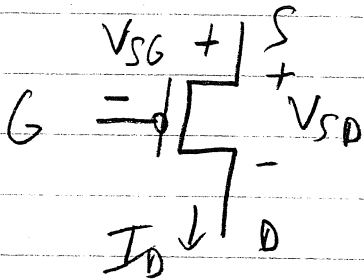 V_SG + S
+
G - V_SD
-
I_D ↓ D